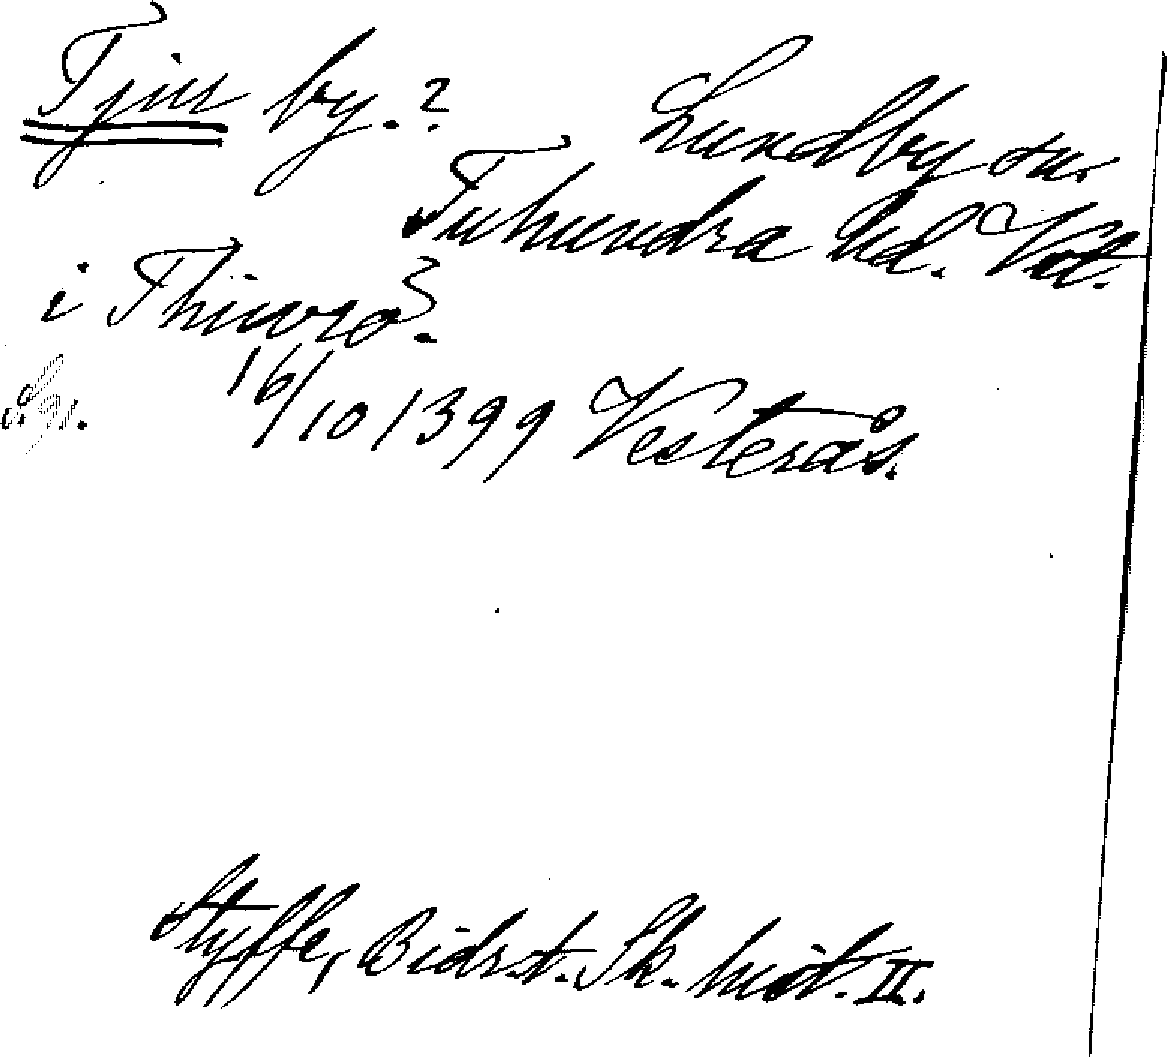 Tjur by.? Lundby sn.
Tuhundra hd. Vst.
i Thiwrö?
16/10 1399 Vesterås.
Styffe, Bidr. t. Sk. hist. II.